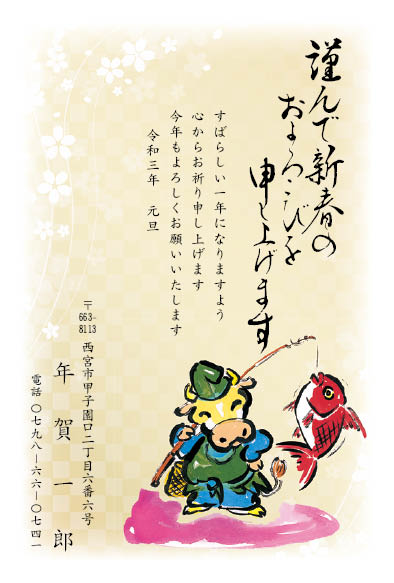 謹んで新春の
およろこびを
申し上げます
すばらしい一年になりますよう
心からお祈り申し上げます
今年もよろしくお願いいたします
令和三年　元旦
〒663-8113
西宮市甲子園口二丁目六番六号
年賀一郎
電話〇七九八ー六六ー〇七四一